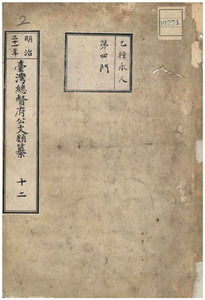 2
明治
三十一年
臺灣總督府公文類纂
十二
乙種永久
第四門
10271